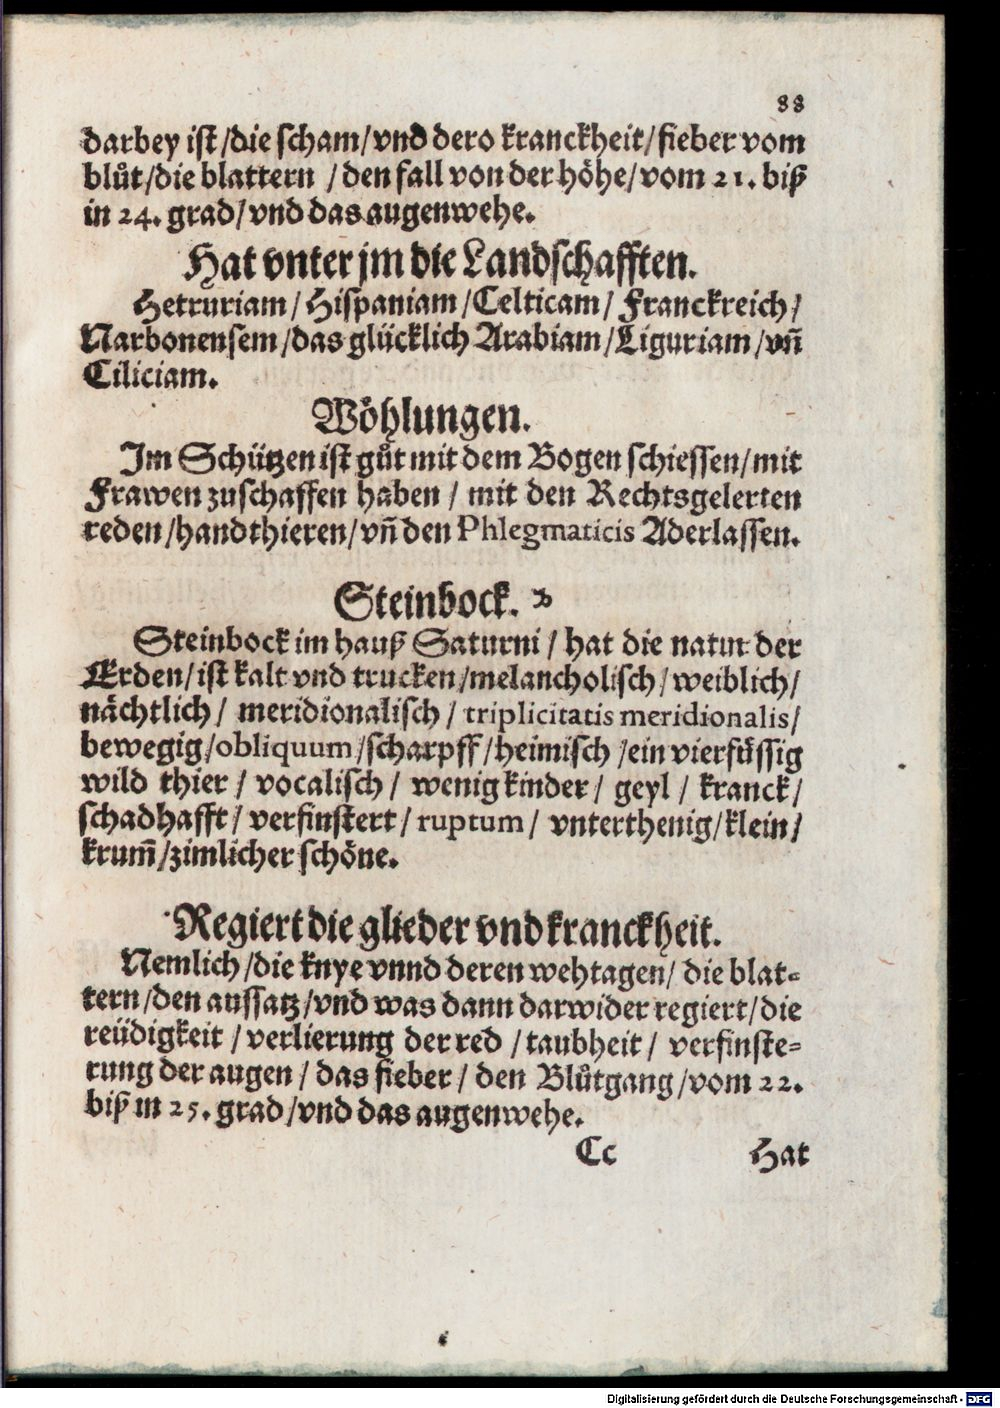 88
darbey ist/die scham/vnd dero kranckheit/fieber vom
blůt/die blattern /den fall von der höhe/vom 21. biß
in 24. grad/vnd das augenwehe.
Hat vnter jm die Landschafften.
Hetruriam/Hispaniam/Celticam/ Franckreich/
Narbonensem/das glücklich Arabiam/Liguriam/vñ
Ciliciam.
Wöhlungen.
Im Schützen ist gůt mit dem Bogen schiessen/mit
Frawen zuschaffen haben / mit den Rechtsgelerten
reden/handthieren/vñ den Phlegmaticis Aderlassen.
Steinbock. ♑
Steinbock im hauß Saturni / hat die natur der
Erden/ist kalt vnd trucken/melancholisch/weiblich/
nächtlich/ meridionalisch/triplicitatis meridionalis/
bewegig/obliquum/scharpff/heimisch /ein vierfüssig
wild thier / vocalisch/ wenig kinder/ geyl / kranck/
schadhafft/ verfinstert/ruptum/ vnterthenig/klein/
krum̃/zimlicher schöne.
Regiert die glieder vnd kranckheit.
Nemlich/die knye vnnd deren wehtagen/ die blat-
tern/den aussatz/vnd was dann darwider regiert/die
reüdigkeit / verlierung der red / taubheit/ verfinste-
rung der augen / das fieber/ den Blůtgang/vom 22.
biß in 25. grad/vnd das augenwehe.
Cc Hat
Digitalisierung gefördert durch die Deutsche Forschungsgemeinschaft - DFG